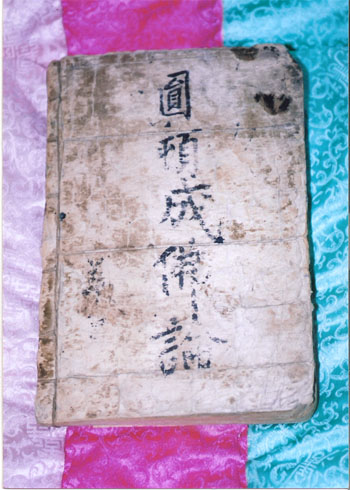 圓頓成佛論